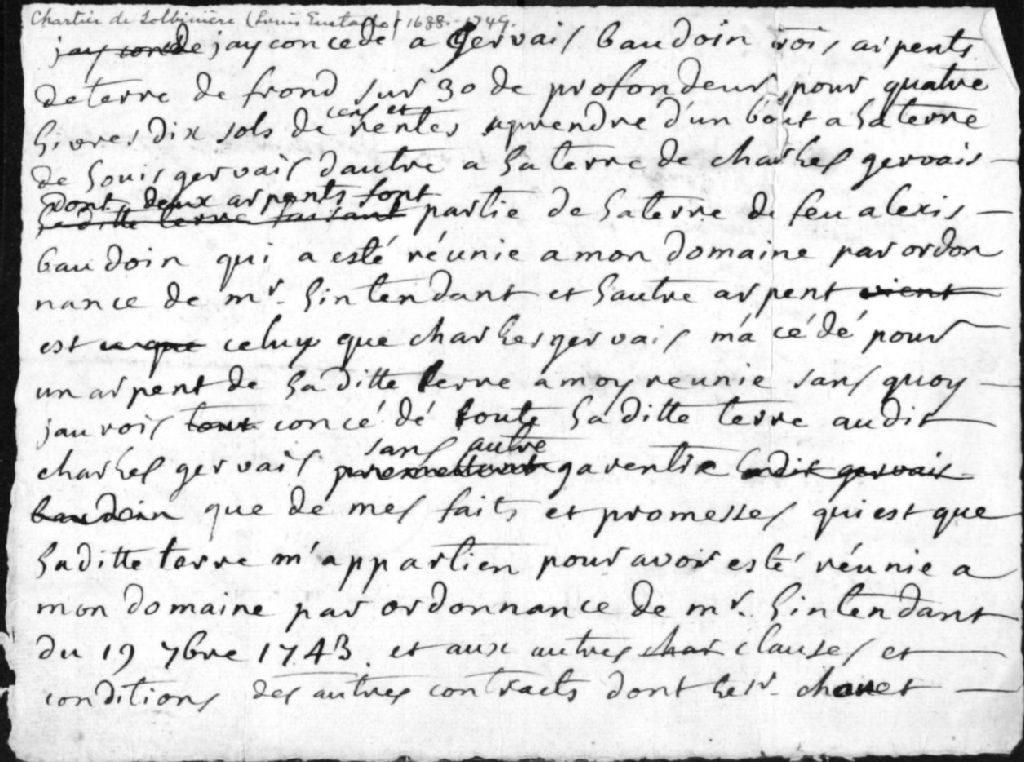 Chartier de Lotbinière (Louis Eustache) 1688-1749.
jay concede jay concedé a Gervais baudoin trois arpents
de terre de frond sur 30 de profondeur pour quatre
livres dix sols de cens et rentes a prendre d'un bout a la terre
de louis gervais d'autre a la terre de charles gervais
dont deux arpents sont
laditte terre faisant partie de la terre de feu alexis
baudoin qui a esté réunie a mon domaine par ordon
nance de mr. l'intendant et l'autre arpent vient
est ce que celuy que charles gervais m'a cédé pour
un arpent de laditte terre a moy reunie sans quoy
jaurois tout concédé toute laditte terre audit
sans autre
charles gervais garentie ledit gervais
baudoin que de mes faits et promesses qui est que
laditte terre m'appartien pour avoir esté réunie a
mon domaine par ordonnance de mr. l'intendant
du 19 7bre 1743. et aux autres char clauses et
conditions des autres contracts dont le sr. choret